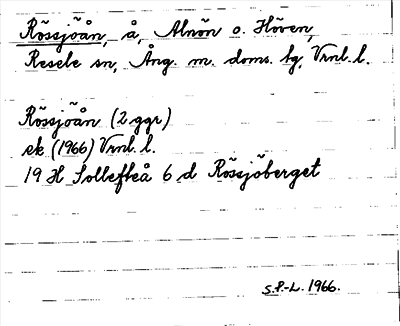 Rössjöån, å, Alnön o. Höven,
Resele sn, Ång. m. doms. lg, Vrnl. l.
Rössjöån (2 ggr)
ek (1966) Vrnl. l.
19 H Sollefteå 6 d Rössjöberget
S.P.-L. 1966.